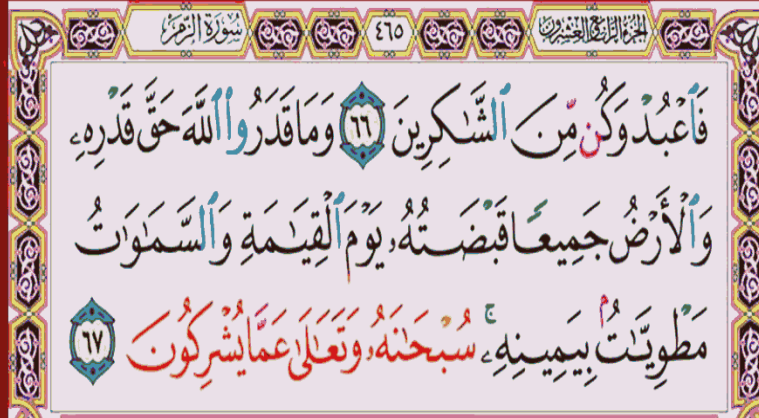 سُورَةُ الزُّمَر ٤٦٥ الجزء الرابع والعشرون
فَٱعۡبُدۡ وَكُن مِّنَ ٱلشَّٰكِرِينَ ٦٦ وَمَا قَدَرُواْ ٱللَّهَ حَقَّ قَدۡرِهِۦ
وَٱلۡأَرۡضُ جَمِيعٗا قَبۡضَتُهُۥ يَوۡمَ ٱلۡقِيَٰمَةِ وَٱلسَّمَٰوَٰتُ
مَطۡوِيَّٰتُۢ بِيَمِينِهِۦۚ سُبۡحَٰنَهُۥ وَتَعَٰلَىٰ عَمَّا يُشۡرِكُونَ ٦٧